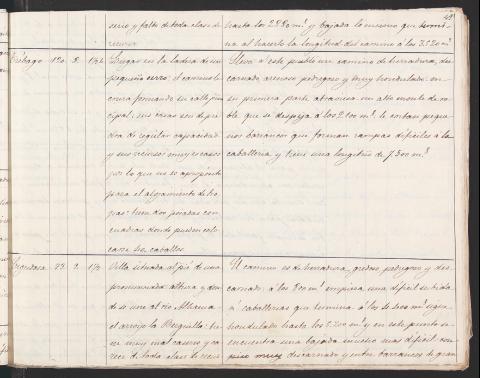 48
serio y falto de toda clase de
recursos
hasta los 2890 m.ˢ y bajada lo mismo que termi-
na al hacerlo la longitud del camino á los 3220 m.ˢ
Trébago 120. 2. 1/4
Lugar en la ladera de un
pequeño cerro: el camino lo
cruza formando su calle prin-
cipal; sus casas son de pie-
dra de regular capacidad
y sus recursos muy escasos
por lo que no es aproposito
para el alojamiento de tro-
pas: tiene dos posadas con
cuadras donde pueden colo-
carse caballos.
Lleva á este pueblo un camino de herradura, des-
carnado arenoso pedregoso y muy hondulado: en
su primera parte atraviesa un alto monte de ro-
ble que se despeja á los 2100 m.ˢ le cortan peque-
nos barrancos que forman rampas dificiles á la
caballeria y tiene una longitud de 7.500 m.ˢ
2. 1/2
Villa situada al pié de una
pronunciada altura y don-
de se une al rio
el arroyo la
ne muy mal caserio y ca-
rece de toda clase de recur-
El camino es de herradura, gredoso, pedregoso y des-
carnado: á los 800 m.ˢ empieza una dificil subida
á caballerias que termina á los m.ˢ sigue
hondulado hasta los 5200 m.ˢ y en este punto se
encuentra una bajada mucho mas dificil con
piso muy descarnado y entre barrancos de gran